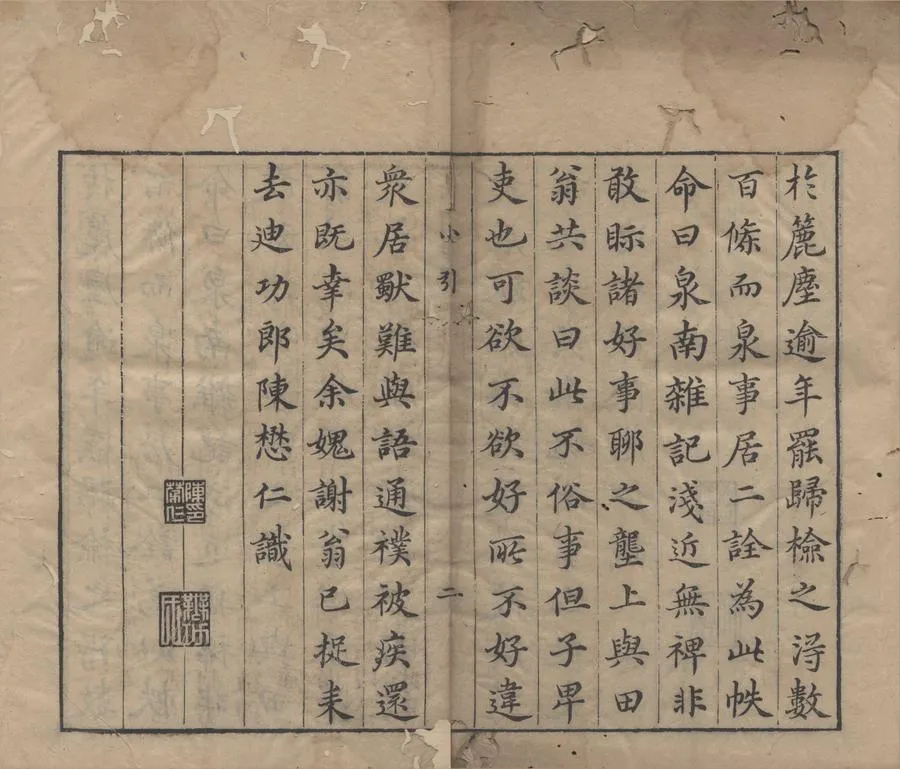 於簏塵逾年罷歸檢之淂數
百條而泉事居二詮為此帙
命曰泉南雜記淺近無裨非
敢眎諸好事聊之壟上與田
翁共談曰此不俗事但子卑
吏也可欲不欲好所不好違
小引 二
衆居獸難與語通襆被疾還
亦既幸矣余媿謝翁已捉耒
去迪功郎陳懋仁識
陳印
懋仁